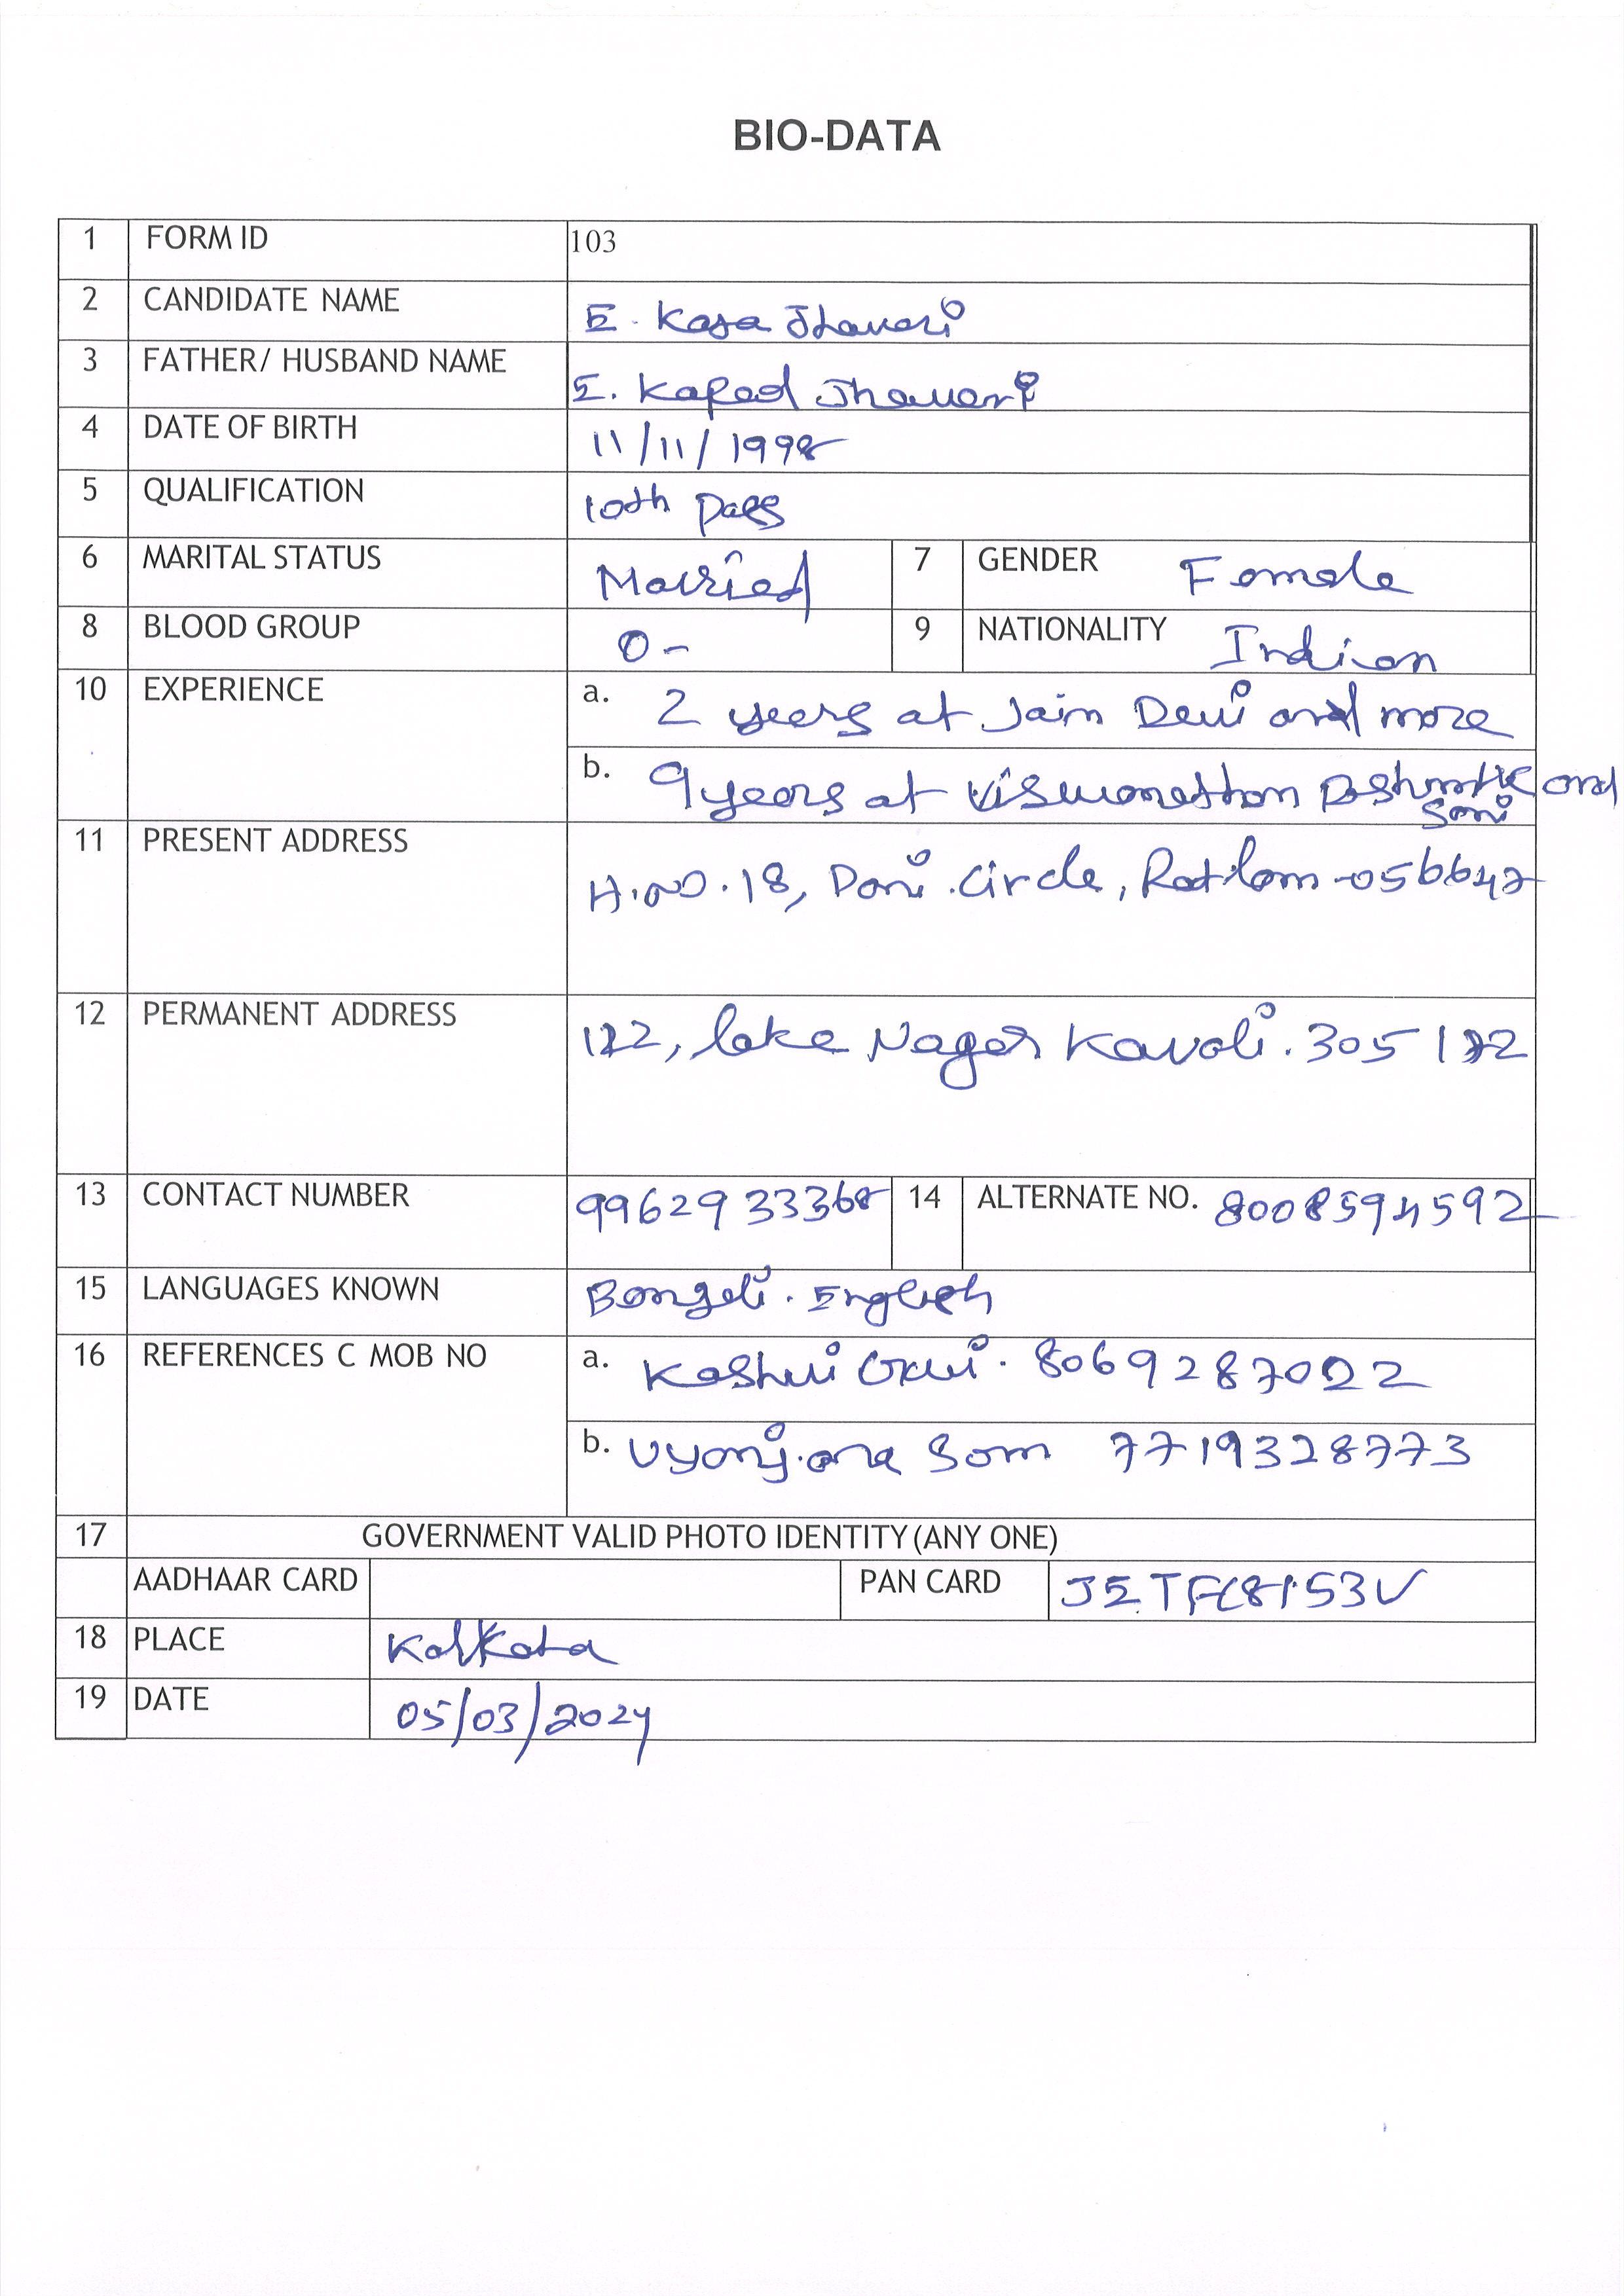 BIO-DATA
1 FORM ID 103
2 CANDIDATE NAME E. Kasa Jhaveri
3 FATHER/ HUSBAND NAME E. Jhaveri
4 DATE OF BIRTH 11/11/1998
5 QUALIFICATION 10th pass
6 MARITAL STATUS Married 7 GENDER Female
8 BLOOD GROUP O- 9 NATIONALITY Indian
10 EXPERIENCE a. 2 years at Jain Devi and more
b. 9 years at and
Soni
11 PRESENT ADDRESS H.NO.18, Dani Circle, Ratlam-056647
12 PERMANENT ADDRESS 122, lake Nagar Kavali. 305122
13 CONTACT NUMBER 9962933368 14 ALTERNATE NO. 8008594592
15 LANGUAGES KNOWN Bengali. English
16 REFERENCES C MOB NO a. Kashvi 8069287022
b. Vyanjana Som 7719328773
17 GOVERNMENT VALID PHOTO IDENTITY(ANY ONE)
AADHAAR CARD PAN CARD
18 PLACE Kolkata
19 DATE 05/03/2024